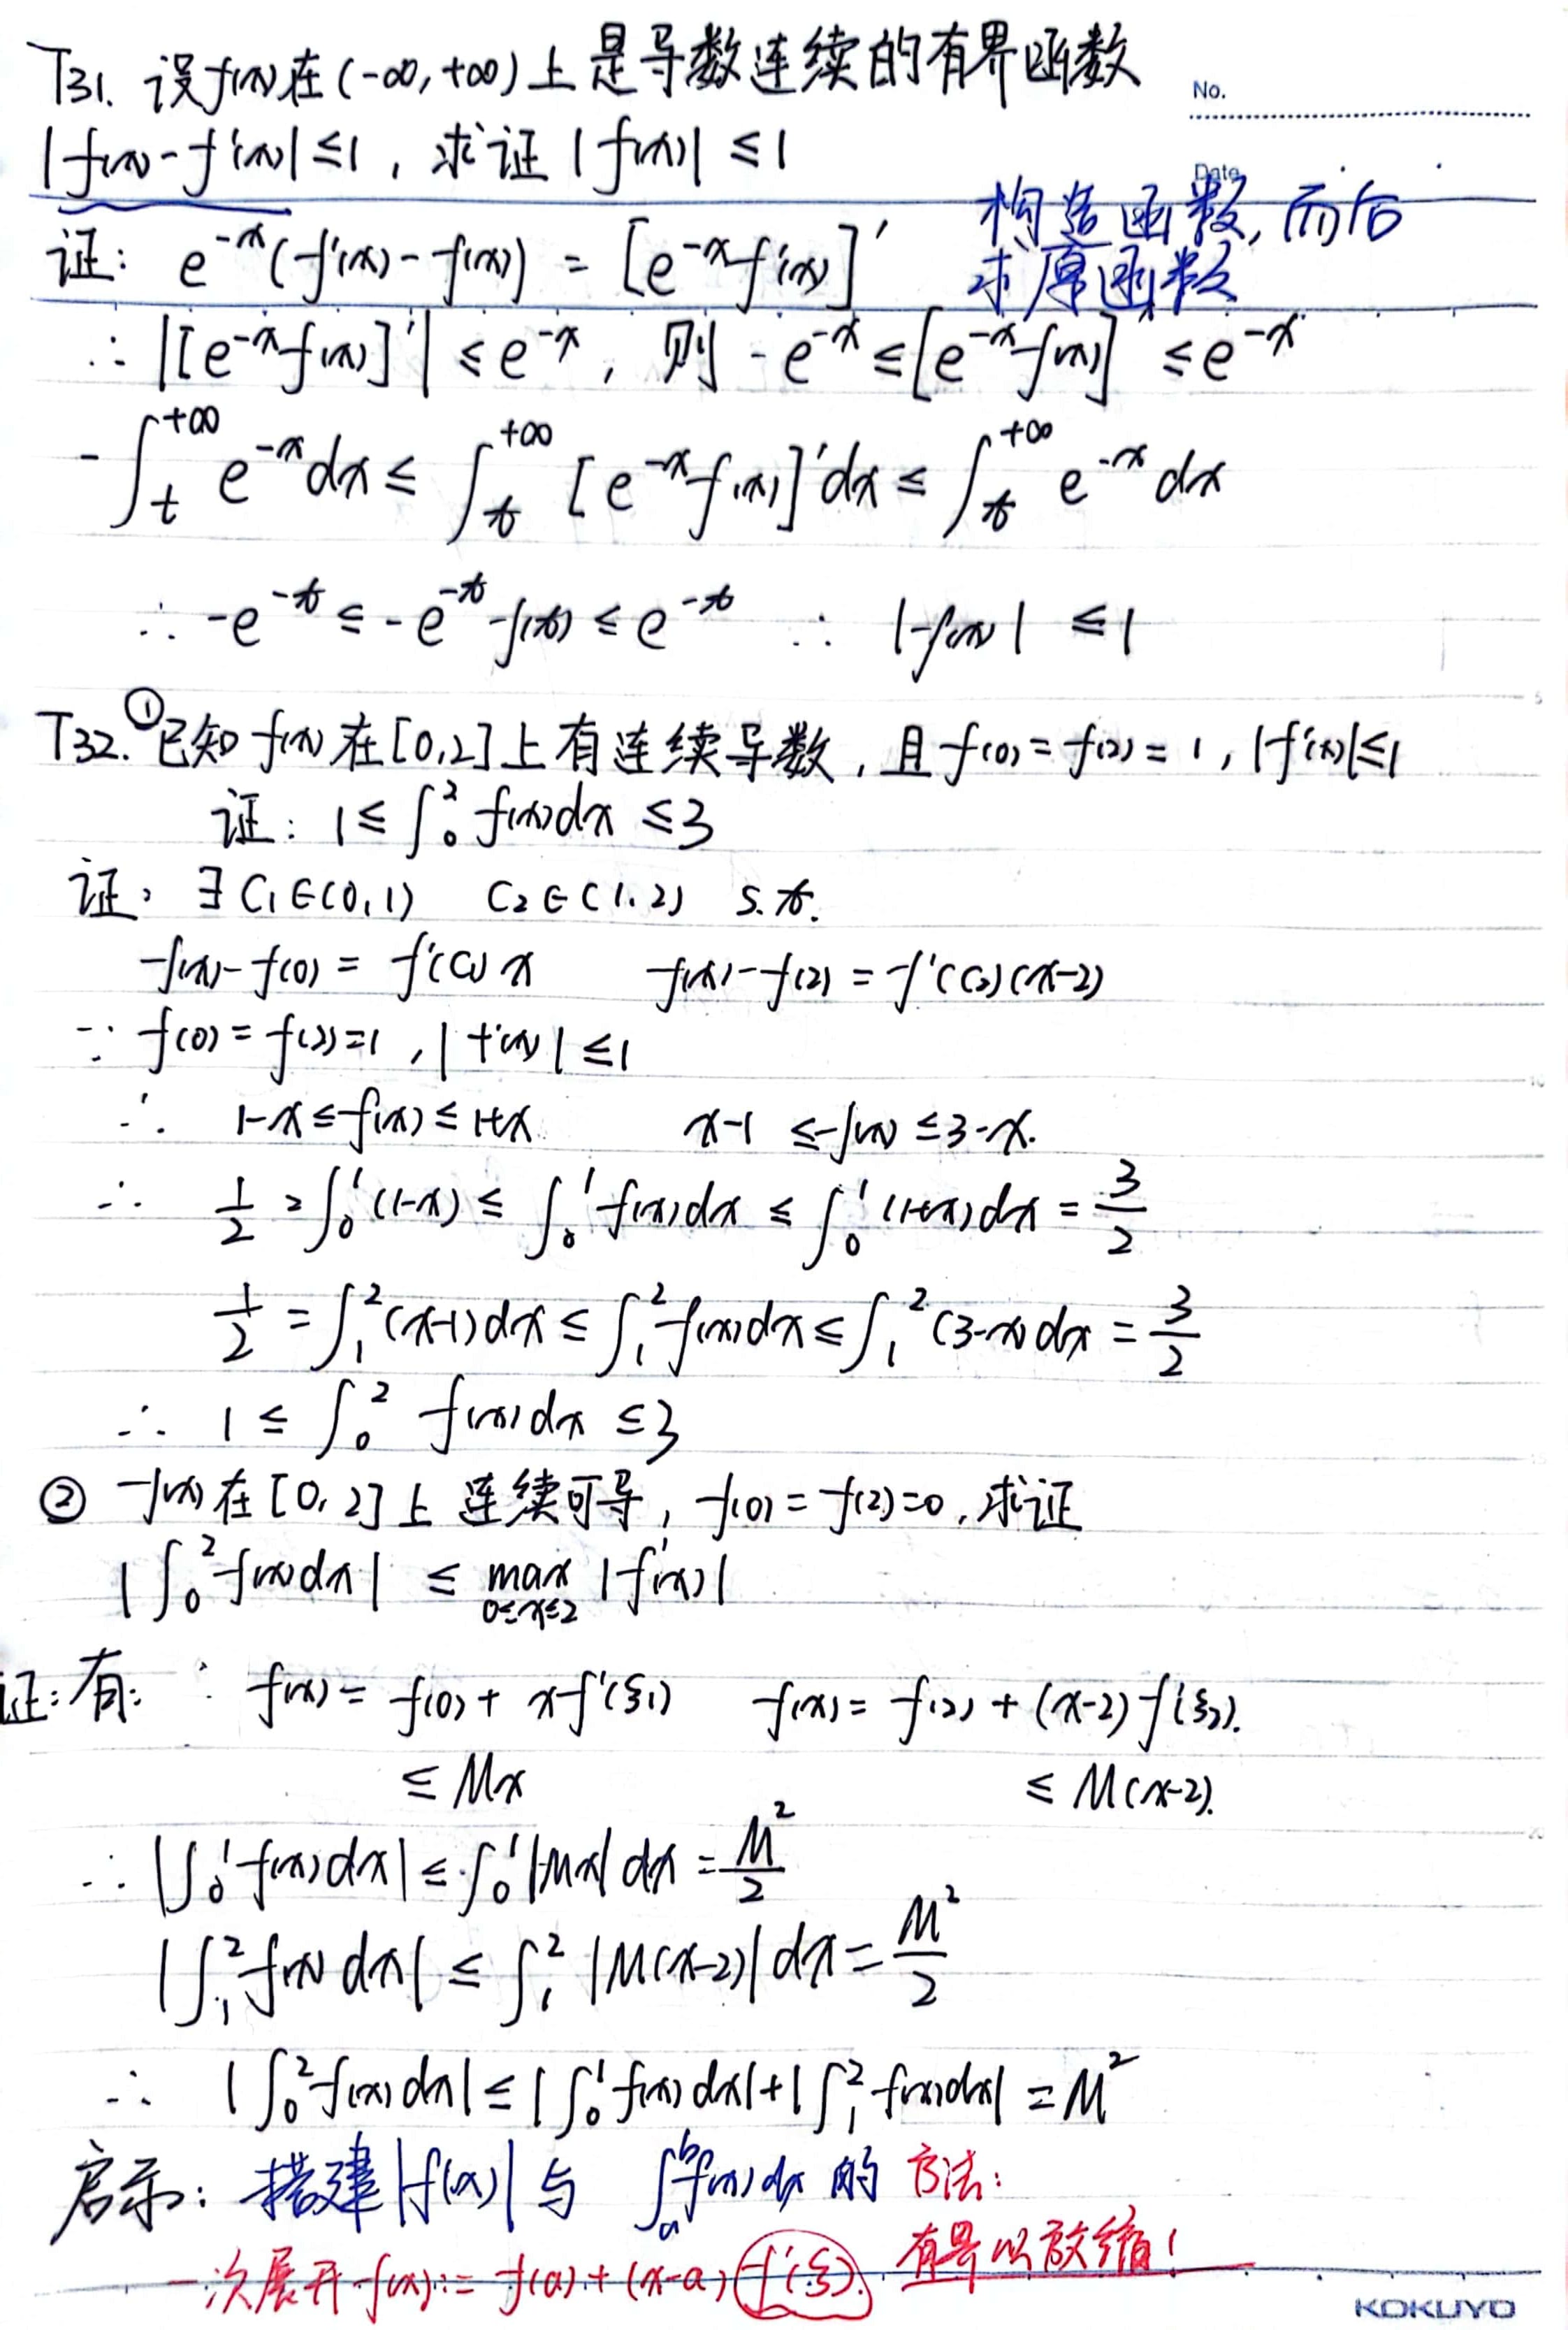 T31. 设f(x)在(-∞,+∞)上是导数连续的有界函数
No.
|f(x)-f'(x)|≤1, 求证|f(x)|≤1
Date
构造函数,而后
求原函数
证: e^{-x}(f'(x)-f(x)) = [e^{-x}f(x)]'
∴ |[e^{-x}f(x)]'| ≤ e^{-x}, 则 -e^{-x} ≤ [e^{-x}f(x)]' ≤ e^{-x}
-∫_t^{+∞} e^{-x}dx ≤ ∫_t^{+∞} [e^{-x}f(x)]'dx ≤ ∫_t^{+∞} e^{-x}dx
∴ -e^{-t} ≤ -e^{-t}f(t) ≤ e^{-t} ∴ |f(x)| ≤ 1
T32.①已知f(x)在[0,2]上有连续导数,且f(0)=f(2)=1,|f'(x)|≤1
证: 1≤∫_0^2 f(x)dx≤3
证: ∃C₁∈(0,1) C₂∈(1,2) s.t.
f(x)-f(0)=f'(C₁)x f(x)-f(2)=f'(C₂)(x-2)
∵ f(0)=f(2)=1,|f'(x)|≤1
∴ 1-x≤f(x)≤1+x x-1≤f(x)≤3-x.
∴ 1/2=∫_0^1(1-x)≤∫_0^1 f(x)dx≤∫_0^1(1+x)dx=3/2
1/2=∫_1^2(x-1)dx≤∫_1^2 f(x)dx≤∫_1^2(3-x)dx=3/2
∴ 1≤∫_0^2 f(x)dx≤3
② f(x)在[0,2]上连续可导,f(0)=f(2)=0,求证
|∫_0^2 f(x)dx| ≤ max_{0≤x≤2}|f'(x)|
证:有: ∵ f(x)=f(0)+xf'(ξ₁) f(x)=f(2)+(x-2)f'(ξ₂).
≤Mx ≤M(x-2).
∴ |∫_0^1 f(x)dx|≤∫_0^1|Mx|dx=M²/2
|∫_1^2 f(x)dx|≤∫_1^2|M(x-2)|dx=M²/2
∴ |∫_0^2 f(x)dx|≤|∫_0^1 f(x)dx|+|∫_1^2 f(x)dx|=M²
启示: 搭建|f(x)|与∫_a^b f(x)dx的方法:
一次展开f(x)=f(a)+(x-a)f'(ξ). 有界以放缩!
KOKUYO